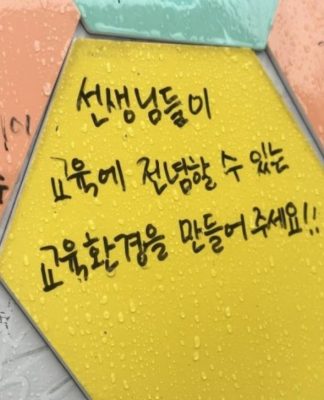 선생님들이
교육에 전념할 수 있는
교육환경을 만들어 주세요!!